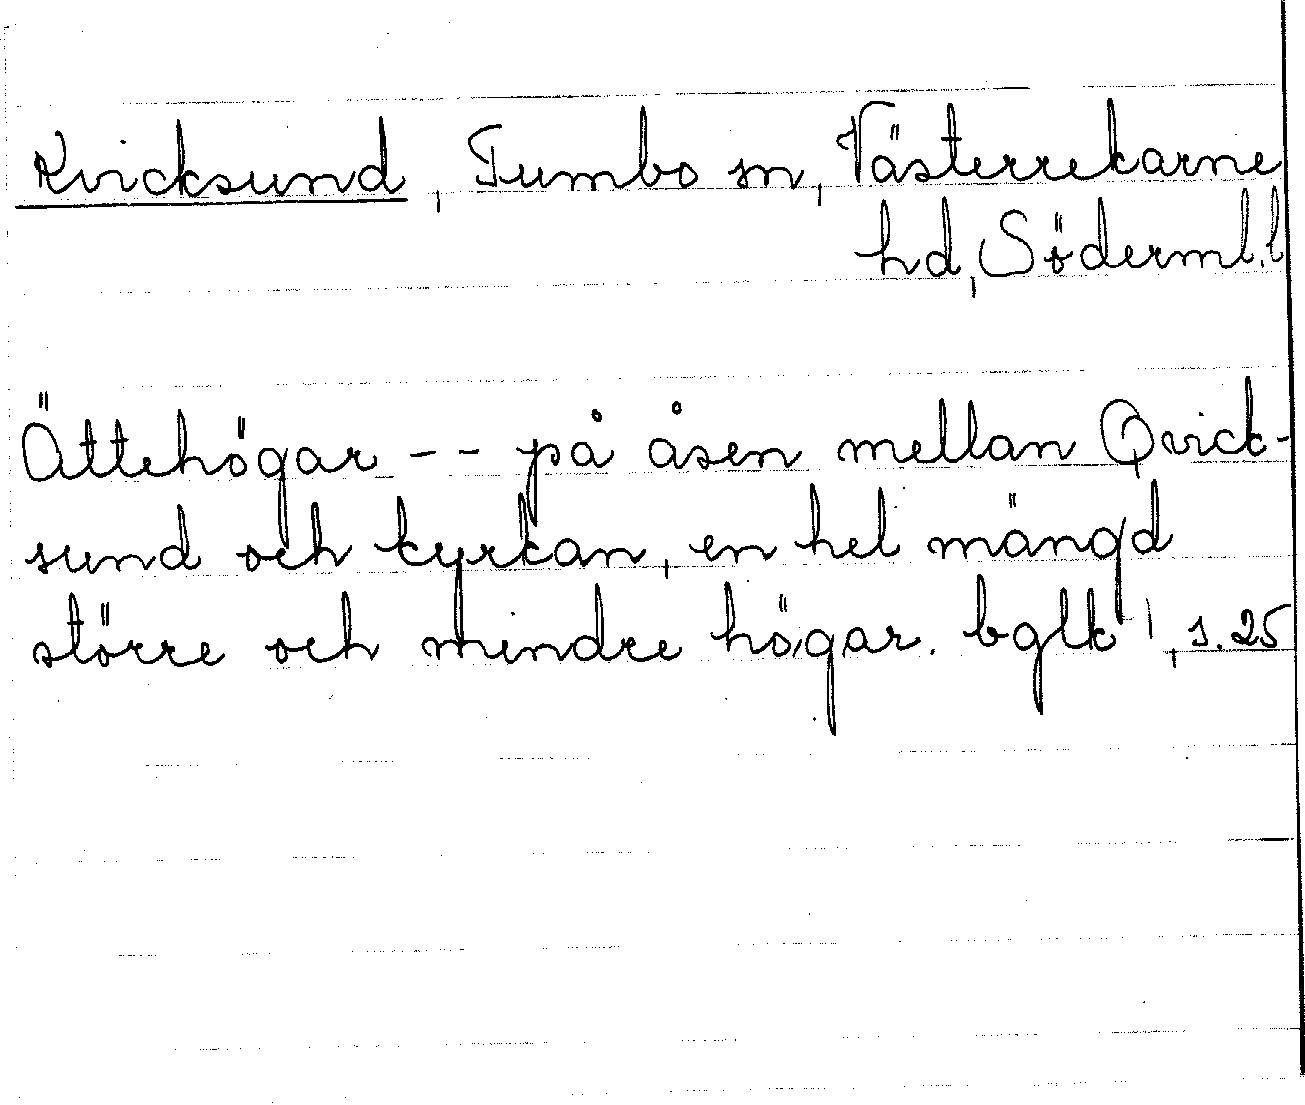 Kvicksund, Tumbo sn, Västerrekarne
hd, Söderml. l
Ättehögar -- på åsen mellan Qvick-
sund och kyrkan, en hel mängd
större och mindre högar. bglk 1, s. 25